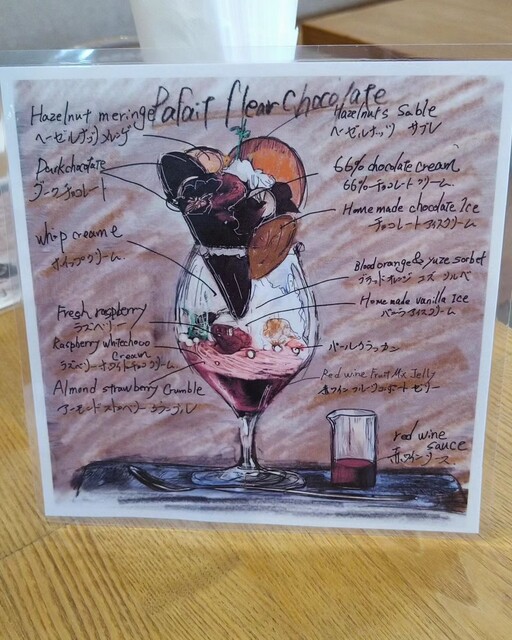 Parfait fleur chocolate
Hazelnut meringe
ヘーゼルナッツ メレンゲ
Darkchocolate
ダークチョコレート
whip creame
ホイップクリーム
Fresh raspberry
ラズベリー
Raspberry whitechoco
Cream
ラズベリーホワイトチョコクリーム
Almond strawberry Crumble
アーモンドストロベリー クランブル
Hazelnuts Sable
ヘーゼルナッツ サブレ
66% chocolate cream
66% チョコレートクリーム
Home made chocolate Ice
チョコレート アイスクリーム
Bloodorange & yuze sorbet
ブラッドオレンジ ユズ ソルベ
Home made vanilla Ice
バニラアイスクリーム
パールクラッカン
Red wine Fruit Mix Jelly
赤ワイン ゼリー
red wine
sauce
赤ワインソース